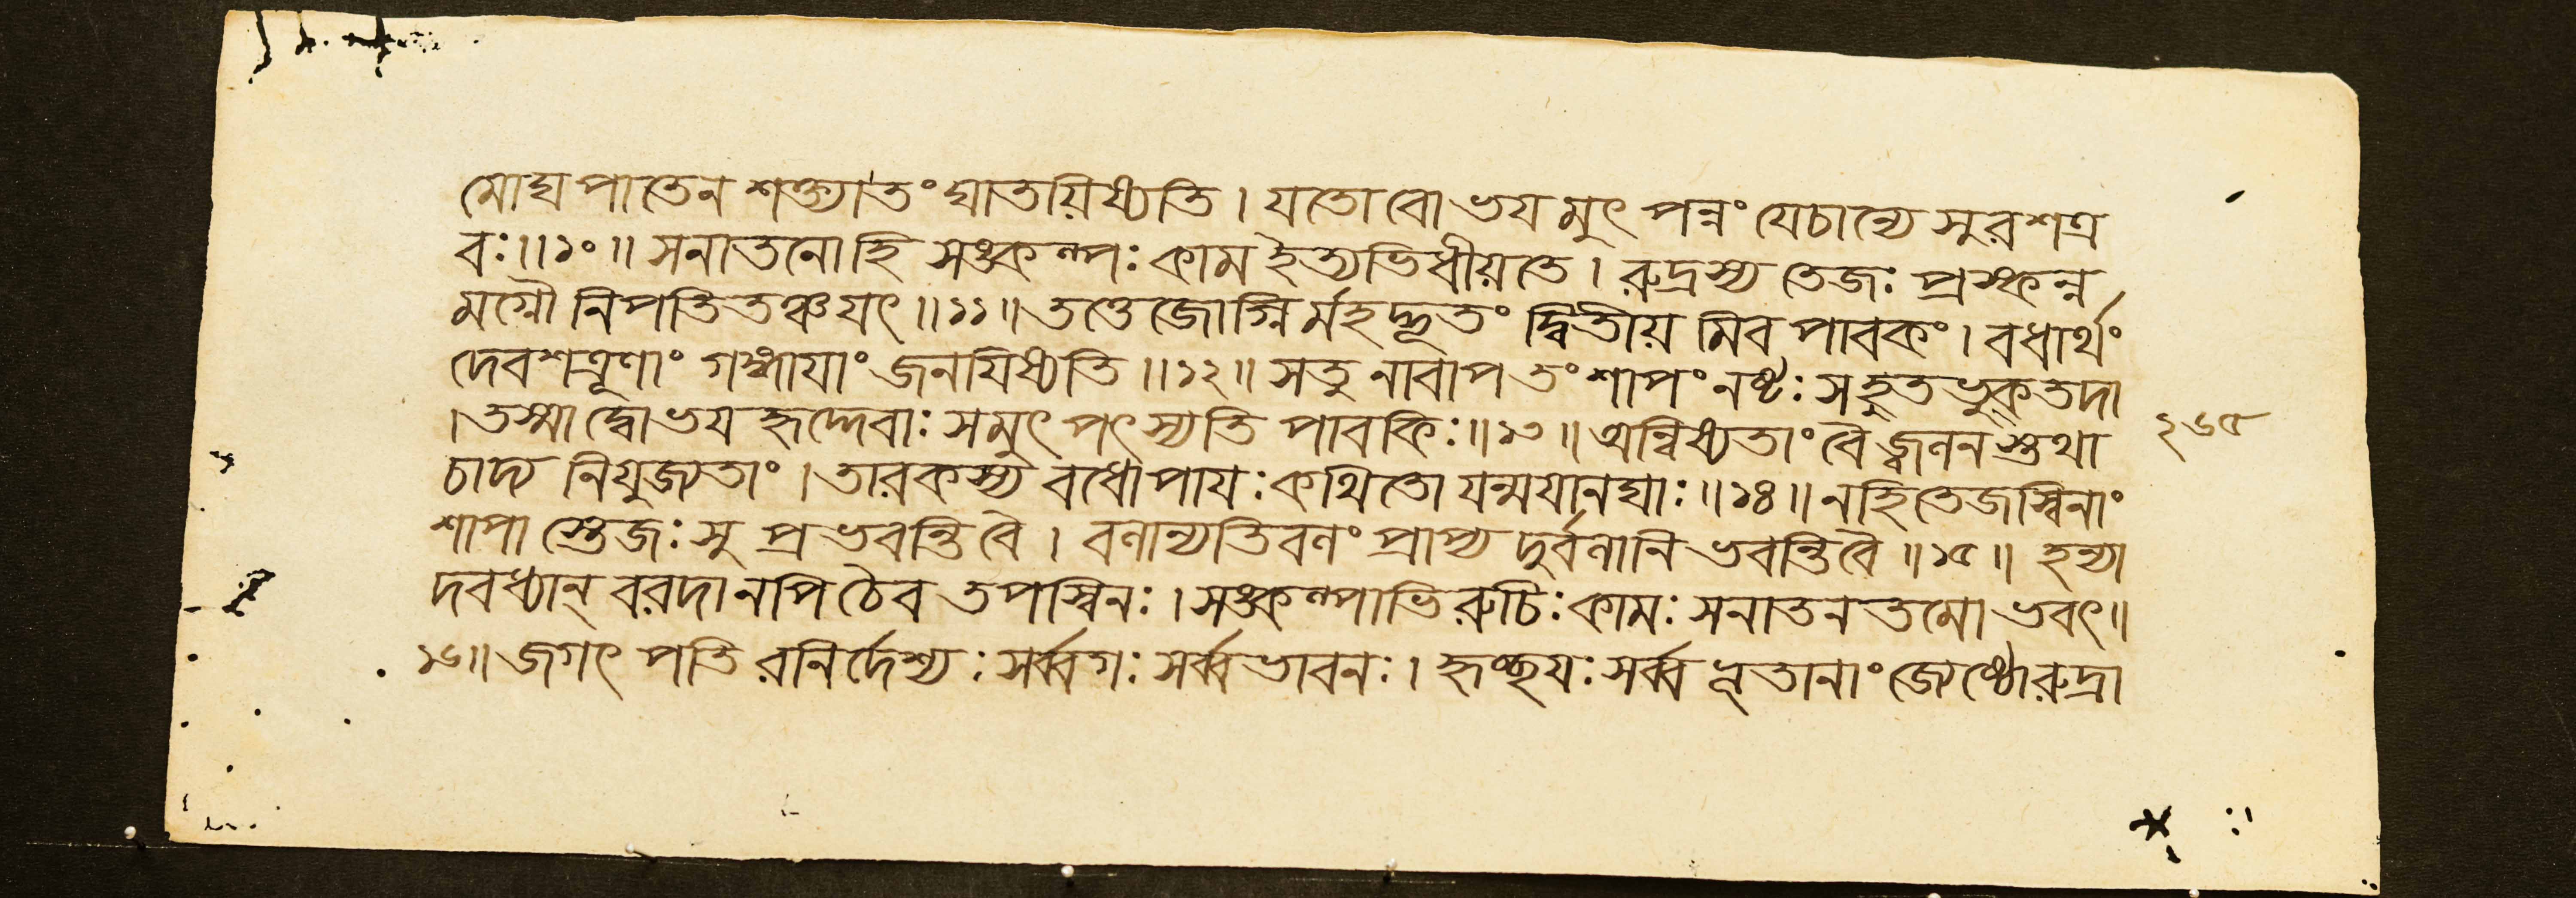 মোঘপাতেন শক্ত্যাতং ঘাতয়িষ্যতি । যতোবোভযমুৎপন্নং যেচান্যে সুরশত্র
বঃ ॥১০॥ সনাতনোহি সঙ্কল্পঃ কাম ইত্যভিধীয়তে । রুদ্রস্য তেজঃ প্রস্কন্ন
মগ্নৌ নিপতিতঞ্চযৎ ॥১১॥ তত্তেজোগ্নির্মহদ্ভূতং দ্বিতীয়মিব পাবকং । বধার্থং
দেবশত্রূণাং গঙ্গাযাং জনযিষ্যতি ॥১২॥ সতুনাবাপতং শাপং নষ্টঃ সহুতভুক্তদা
। তস্মাদ্বোভযহৃদ্দেবাঃ সমুৎপৎস্যতি পাবকিঃ ॥১৩॥ অন্বিষ্যতাং বৈ জ্বলনস্তথা
চাদ্য নিযুজ্যতাং । তারকস্য বধোপাযঃ কথিতো যন্মযানঘাঃ ॥১৪॥ নহিতেজস্বিনাং
শাপাস্তেজঃসু প্রভবন্তিবৈ । বলান্যতিবলং প্রাপ্য দুর্বলানি ভবন্তিবৈ ॥১৫॥ হন্যা
দবধ্যান্ বরদানপিচৈব তপস্বিনঃ । সঙ্কল্পাভিরুচিঃ কামঃ সনাতনতমোভবৎ॥
১৬॥ জগৎপতিরনির্দেশ্যঃ সর্ব্বগঃ সর্ব্বভাবনঃ । হৃচ্ছযঃ সর্ব্বভূতানাং জ্যেষ্ঠোরুদ্রা
২৬৫